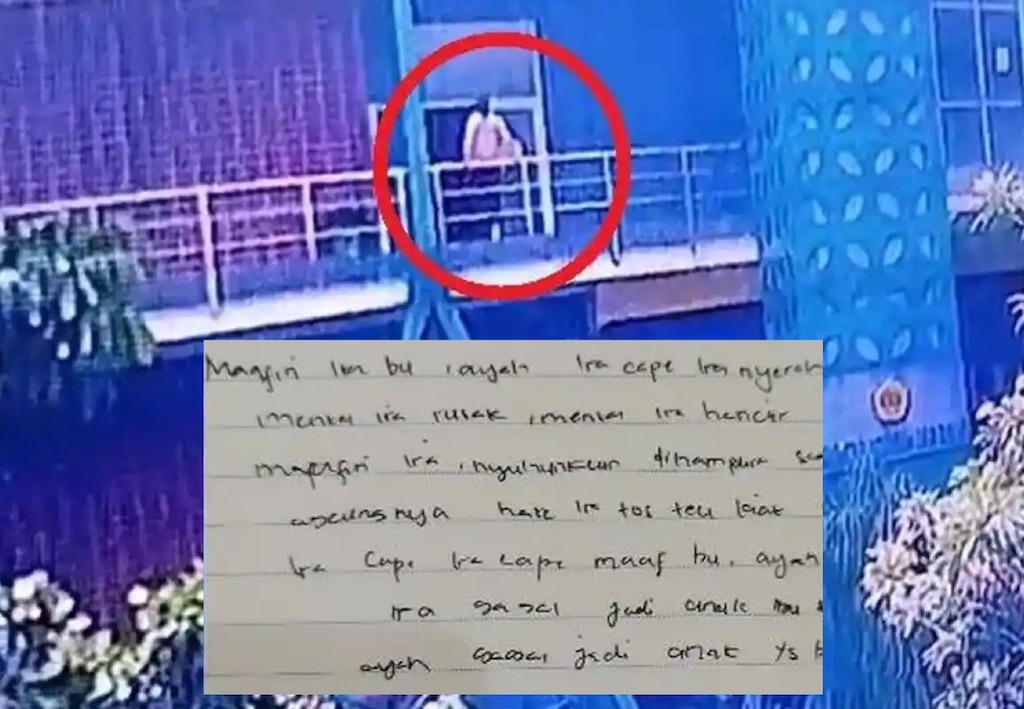 Maafin Ira bu , ayah Ira cape Ira nyerah
, mental Ira rusak , mental Ira hancur
maafin Ira , nyuhunkeun dihampura
hate Ira tos teu kiat
Ira Cape Ira cape maaf bu. ayah
Ira gagal jadi anak
ayah gagal jadi anak yg